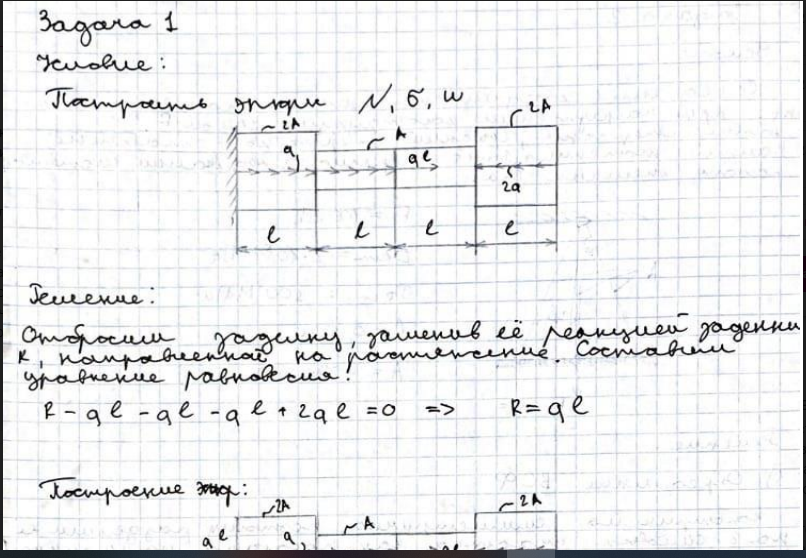 Задача 1
Условие:
Построить эпюры N, σ, w
2A A 2A
q ql 2q
l l l l
Решение:
Отбросим заделку, заменив её реакцией заделки
R, направленной на растяжение. Составим
уравнение равновесия:
R - ql - ql - ql + 2ql = 0 => R = ql
Построение эпюр:
2A A 2A
ql q ql